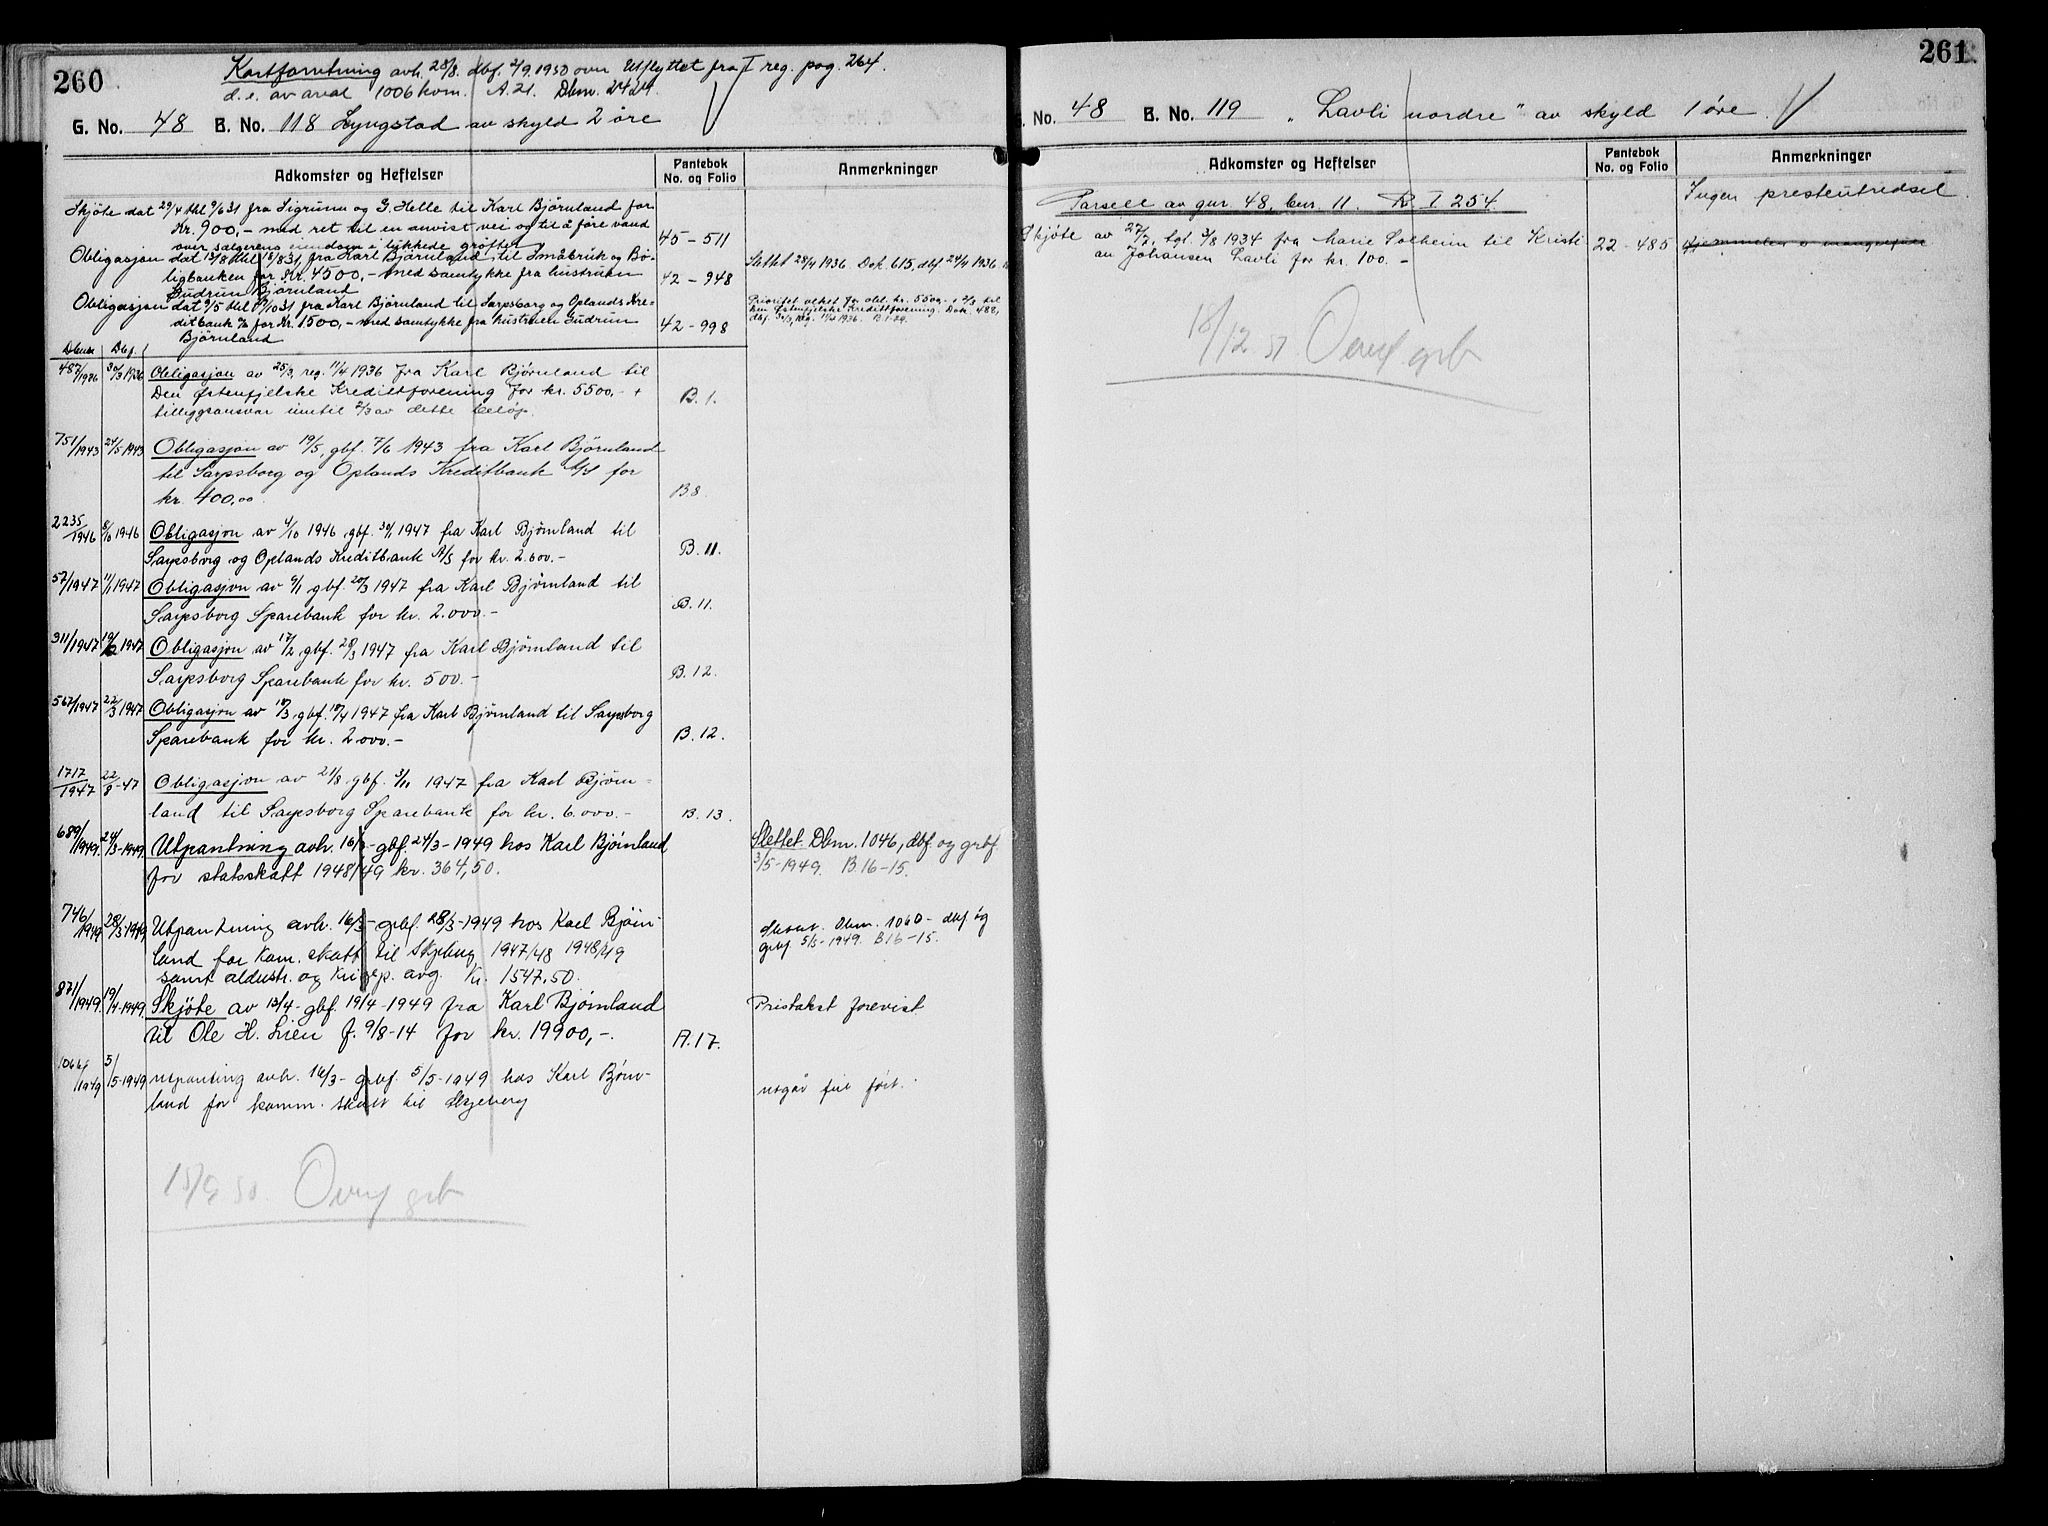 260
Kartforretning avh. 28/8. dbf. 2/9.1950 over Utflyttet fra I reg. pag. 264.
d.e. av areal 1006 kvm. A.21. Dbnr. 2424.
G. No. 48 B. No. 118 Lyngstad av skyld 2 øre
Adkomster og Heftelser
Pantebok No. og Folio
Anmerkninger
Skjöte dat 29/4 thl 9/6 31 fra Sigrunn og G. Helle til Karl Björnland for
Kr. 900,- med ret til en anvist vei og til å före vand
over sælgerens eiendom i lukkede gröfter
45-511
Obligasjon dat 13/8 thl 18/8 31, fra Karl Björnland, til Småbruk og Bo-
ligbanken for Kr. 4500,- med samtykke fra hustruen
Gudrun Björnland
42-948
Slettet 28/4 1936. Dok. 615, dbf. 24/4 1936.
Obligasjon dat 9/5 thl 31 fra Karl Björnland til Sarpsborg og Oplands Kre-
ditbank A/S for Kr. 1500,- med samtykke fra hustruen Gudrun
Björnland
42-998
Prioritet veket for obl. kr. 5500,- + 2/3 til
Den Østenfjelske Kredittforening. Dok. 488,
dbf. 30/3, reg. 11/4 1936. B.1-29.
Dbnr. Dbf.
487/1936 30/3 1936 Obligasjon av 25/3, reg. 11/4 1936 fra Karl Bjørnland til
Den Østenfjelske Kredittforening for kr. 5500,- +
tilleggsansvar inntil 2/3 av dette beløp.
B.1.
751/1943 24/5 1943 Obligasjon av 19/5, gbf. 7/6 1943 fra Karl Bjørnland
til Sarpsborg og Oplands Kreditbank A/S for
kr. 400,00.
B8.
2235/1946 8/10 1946 Obligasjon av 4/10 1946, gbf. 30/1 1947 fra Karl Bjørnland til
Sarpsborg og Oplands Kreditbank A/S for kr. 2.600.-
B.11.
57/1947 11/1 1947 Obligasjon av 9/1 gbf. 20/3 1947 fra Karl Bjørnland til
Sarpsborg Sparebank for kr. 2.000.-
B.11.
311/1947 19/2 1947 Obligasjon av 17/2, gbf. 28/3 1947 fra Karl Bjørnland til
Sarpsborg Sparebank for kr. 500.-
B.12.
567/1947 22/3 1947 Obligasjon av 18/3, gbf. 18/4 1947 fra Karl Bjørnland til Sarpsborg
Sparebank for kr. 2.000.-
B.12.
1717/1947 22/8-47 Obligasjon av 21/8, gbf. 3/11 1947 fra Karl Bjørn-
land til Sarpsborg Sparebank for kr. 6.000.-
B.13.
689/1949. 24/3-1949. Utpantning avh. 16/3-gbf. 24/3-1949 hos Karl Bjørnland
for statsskatt 1948/49 kr. 364,50.
Slettet. Dbnr. 1046, dbf. og grbf.
3/5-1949. B.16-15.
746/1949 28/3-1949 Utpantning avh. 16/3-grbf. 28/3-1949 hos Karl Bjørn-
land for kom. skatt til Skjeberg 1947/48 1948/49
samt alderstr. og krigsp. avg. Kr. 1547,50.
Slettet. Dbnr. 1060- dbf og
grbf 5/5-1949. B16-15.
871/1949. 19/4-1949. Skjöte av 13/4-gbf. 19/4-1949 fra Karl Bjørnland
til Ole H. Lien f. 9/8-14 for kr. 19900,-.
A.17.
Pristakst forevist
/1949 5/5-1949 utpanting avh. 16/3- grbf. 5/5-1949 hos Karl Bjørn-
land for komm. skatt til Skjeberg
utgår
ført.
15/9 50. Overf grb
261
G. No. 48 B. No. 119 „Lavli nordre" av skyld 1 øre.
Adkomster og Heftelser
Pantebok No. og Folio
Anmerkninger
Parsell av gnr. 48, bnr. 11. R I 254.
Ingen presteutredsel
Skjöte av 27/7, tgl. 3/8 1934 fra Marie Solheim til Kristi-
an Johansen Lavli for kr. 100.-
22-485
Hjemmelen er mangelfull
18/12 51 Overf grb